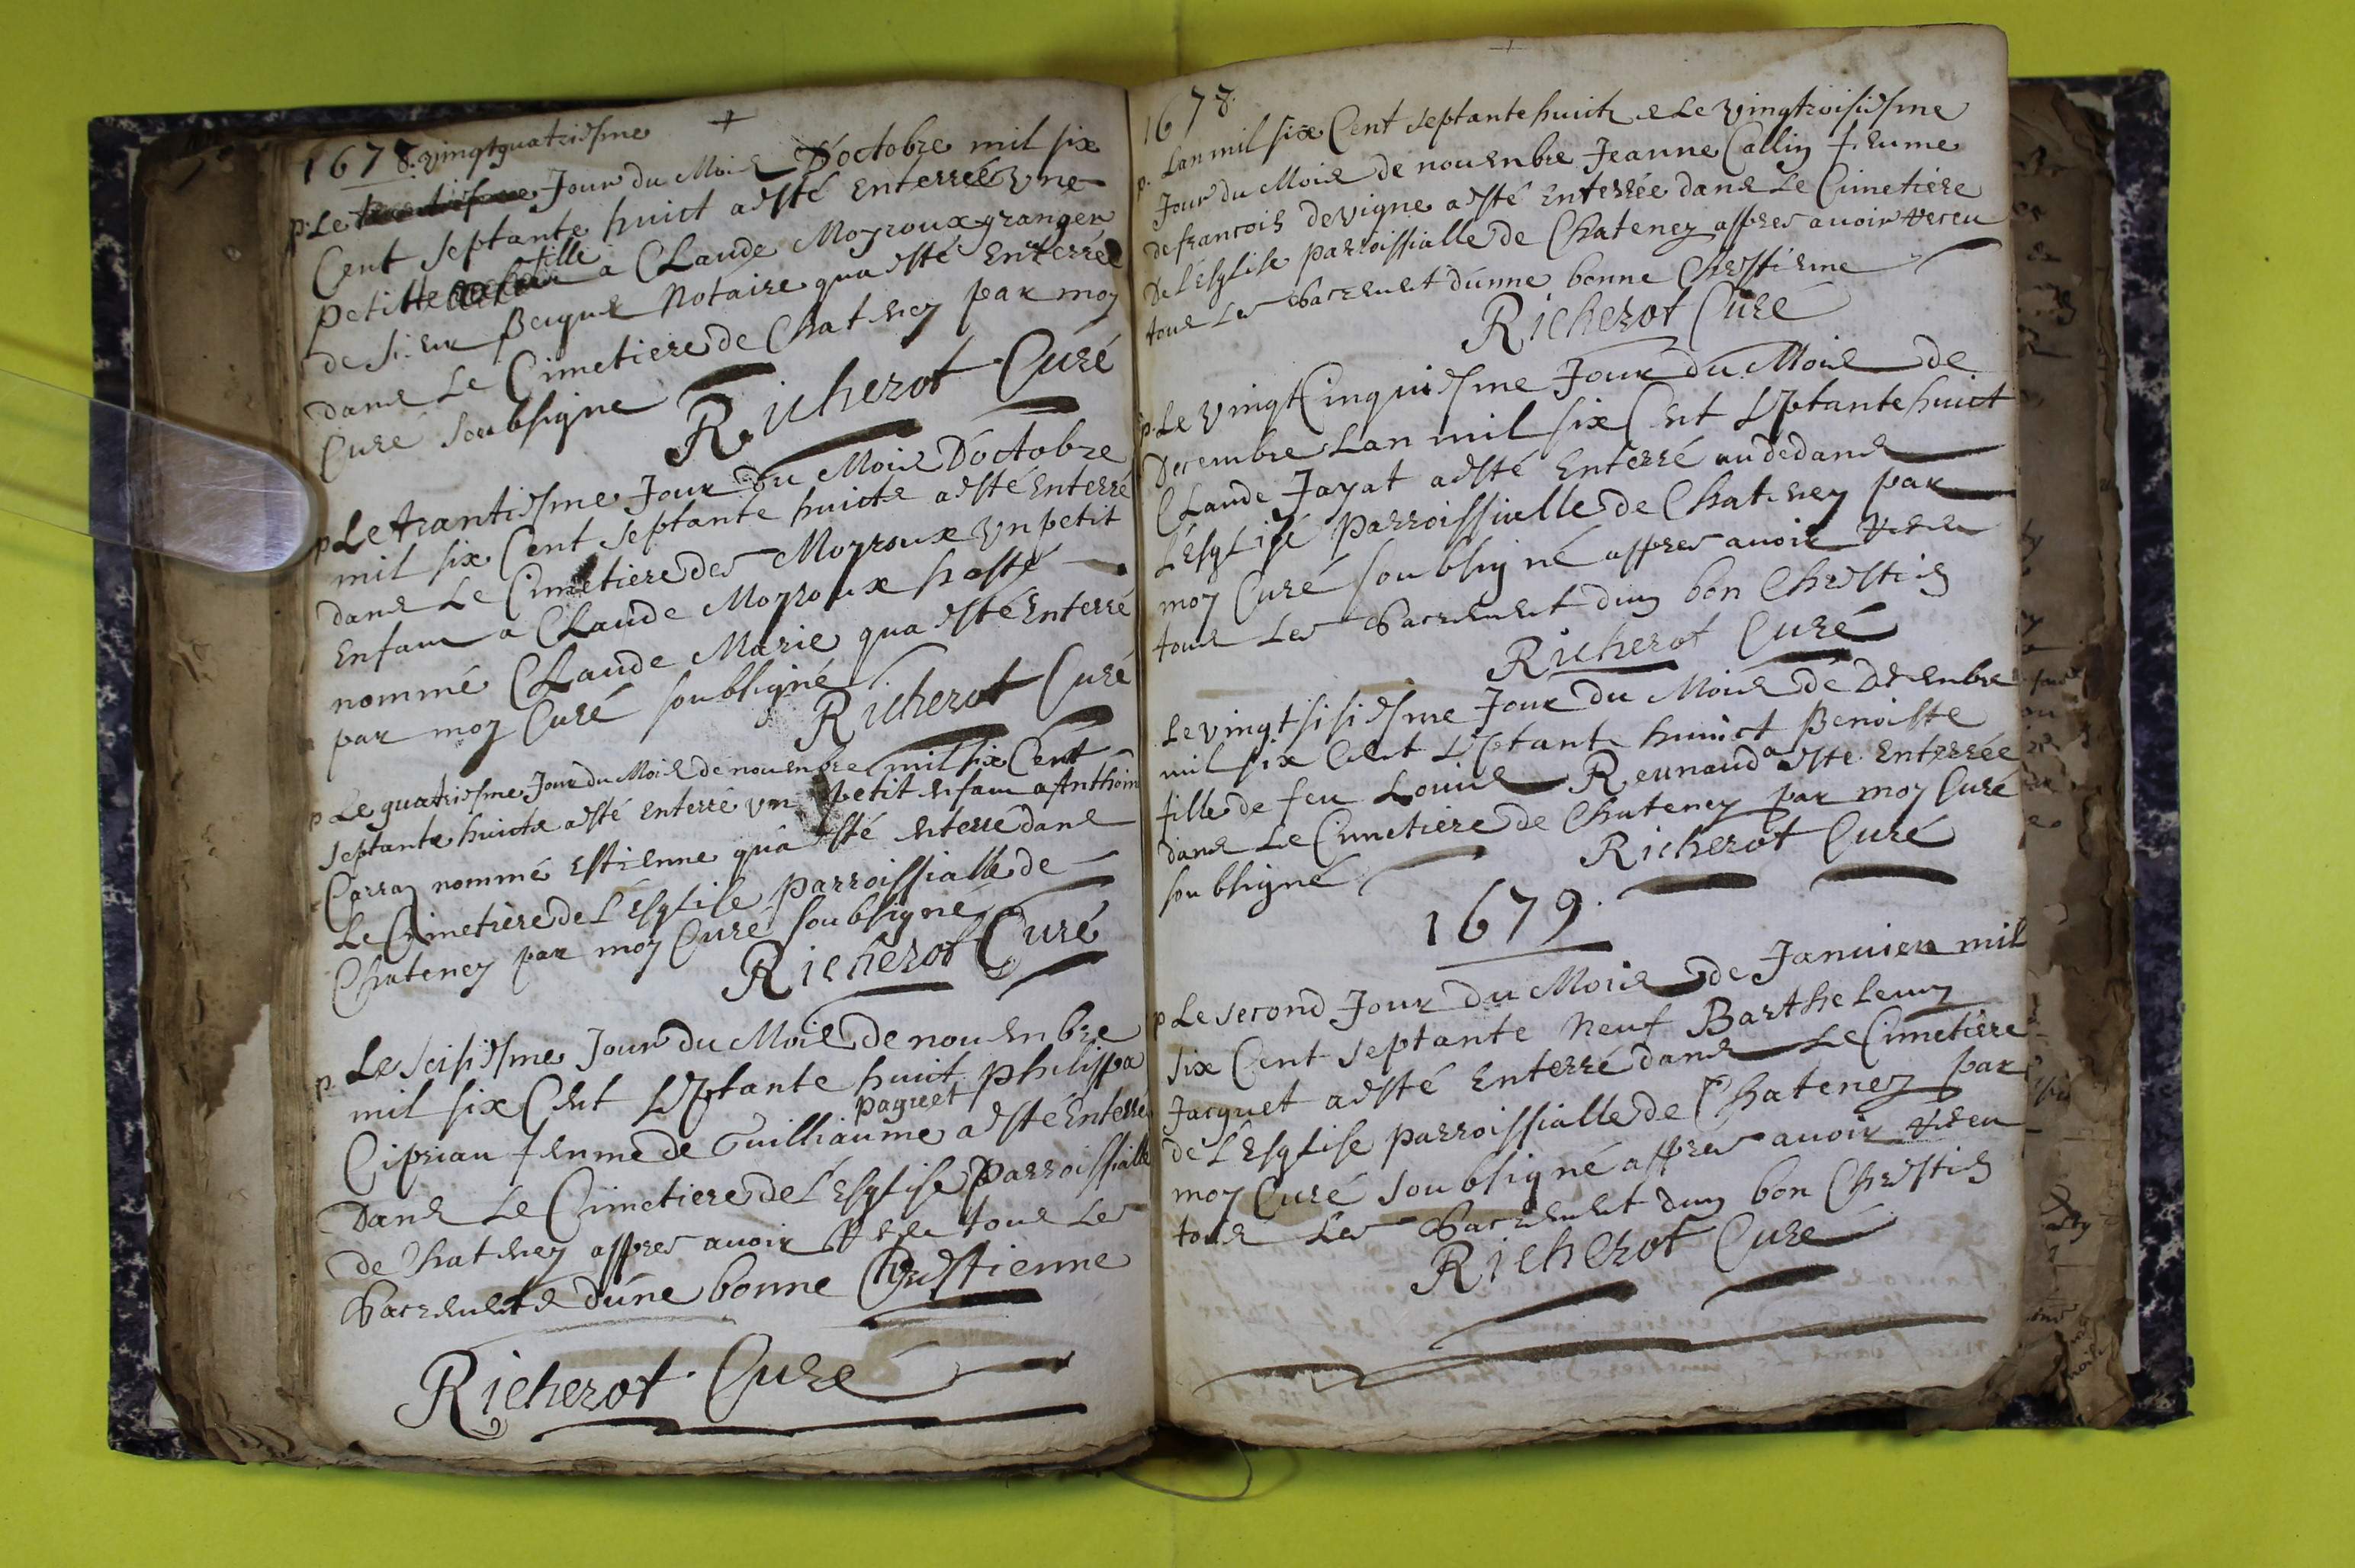 1678. vingtquatriesme
p. Le Jour du Mois D'octobre mil six
Cent septante huict a esté enterreé une
petitte fille a Claude Moyroux granger
de sieur Notaire qua esté enterrée
dans Le Cimetiere de Chateney par moy
Curé soubsigne
Richerot Curé
p Le trantiesme Jour du Mois D'octobre
mil six Cent septante huicte a esté enterré
dans Le Cimetiere des Moyroux un petit
enfant a Claude Moyroux hoste
nommé Claude Marie qua esté enterré
par moy Curé soubsigné
Richerot Curé
p Le quatriesme Jour du Mois de nouenbre mil six Cent
septante huicte a esté enterré un petit enfan a Anthoine
Carraz nommé Estienne qua esté enterre dans
Le Cimetiere de L'Esglise parroissialle de
Chateney par moy Curé soubsigné
Richerot Curé
p. Le seisiesme Jour du Mois de nouenbre
mil six Cent septante huict philippa
paquet
Ciprian fenme de Guilliaume a esté enterre
Dans Le Cimetiere de L'Esglise parroissialle
de Chateney appres auoir receu tous Les
Sacrements d'une bonne Chrestienne
Richerot Curé
1678.
p. Lan mil six Cent septante huict e Le vingtroisiesme
Jour du Mois de nouenbre Jeanne Callin feume
de francois devigne a esté enterrée dans Le Cimetiere
De L'Esglise parroissialle de Chateney appres auoir receu
tous Les Sacrement d'unne bonne Chrestienne
Richerot Curé
p. Le vingt Cinquiesme Jour du Mois de
Decembre Lan mil six Cent septante huict
Claude Jayat a esté enterré au dedans
L'Esglisé parroissialle de Chateney par
moy Curé soubsigné appres auoir receu
tous Les Sacrement dun bon Chrestien
Richerot Curé
Le vingt sisiesme Jour du Mois de Decenbre
mil six Cent septante huict Benoiste
fille de feu Louis Reunaud a esté enterrée
dans Le Cimetiere de Chateney par moy Curé
soubsigné
Richerot Curé
1679.
p Le second Jour du Mois de Januier mil
six Cent septante Neuf Barthelemy
Jacquet a esté enterré dans Le Cimetiere
de L'Esglise parroissialle de Chateney par
moy Curé soubsigné appres auoir receu
tous Les Sacrement dun bon Chrestien
Richerot Curé